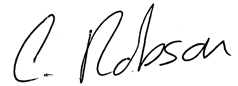 C. Robson